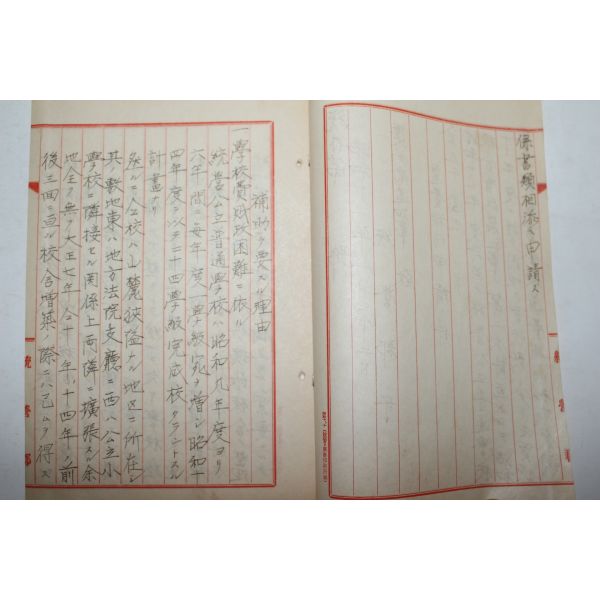 係書類相添ヘ申請ス
補助ヲ要スル理由
一學校費財政困難ニ依ル
統營公立普通學校ハ昭和九年度ヨリ
六年間ニ每年度一學級宛ヲ增シ昭和十
四年度ヲ以テ二十四學級完成校タラントスル
計畫ナリ
然ルニ全校ハ山麓狹隘ナル地区ニ所在シ
其ノ敷地東ハ地方法院支廳ニ西ハ公立小
學校ニ隣接セル関係上両隣ニ擴張スル余
地全ク無ク大正七年、仝十年、十四年ノ前
後三回ニ亘ル校舍增築ノ際ニハ已ムヲ得ス
統營郡